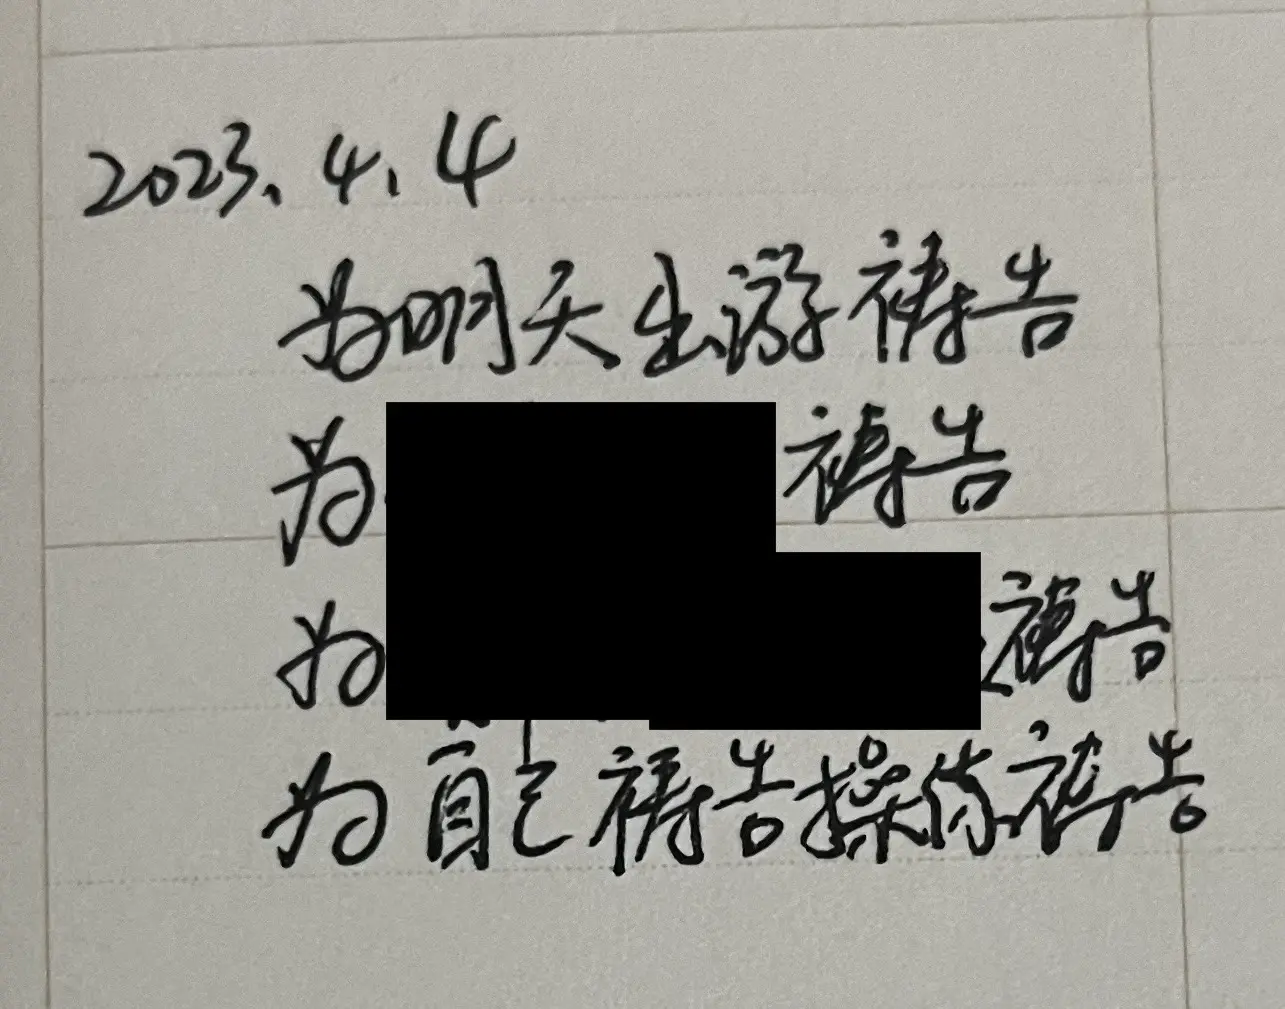 2023.4.4
为明天出游祷告
为 祷告
为 祷告
为自己祷告操练祷告